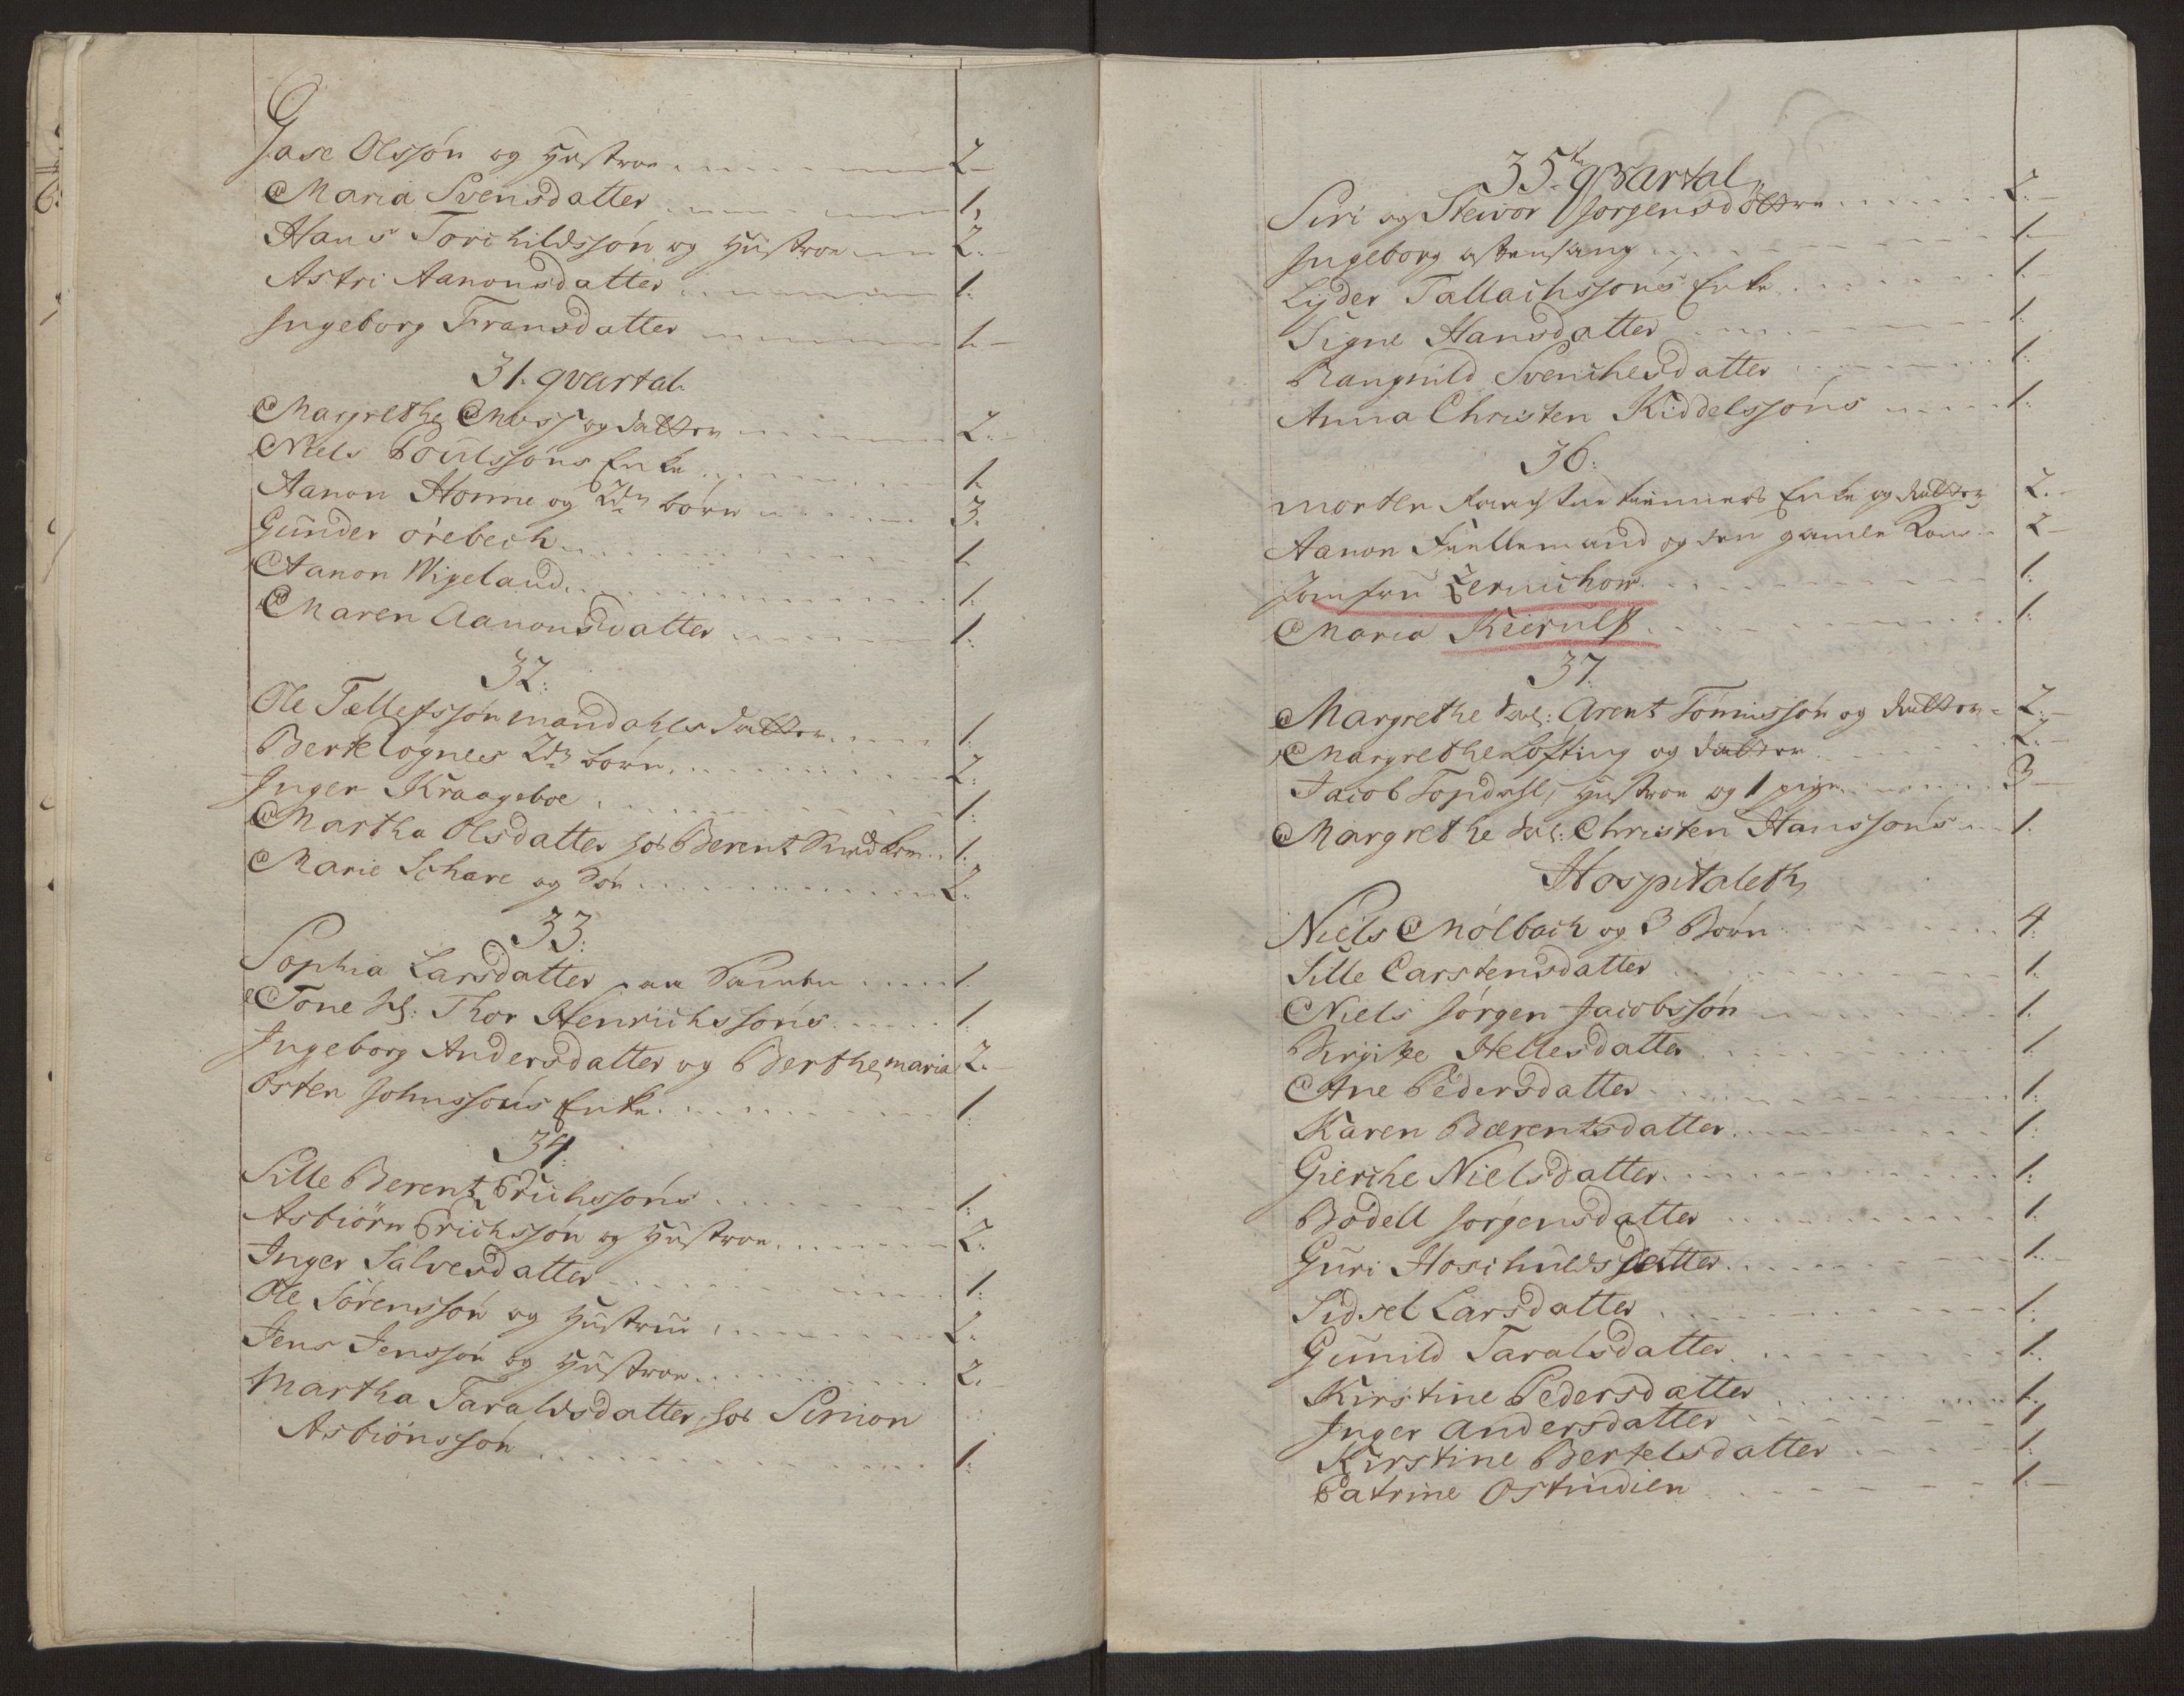 Jase Olssøn og Hustroe 2
Maria Svensdatter 1.
Hans Torchildssøn og Hustroe 2.
Astri Aanonsdatter 1.
Ingeborg Fransdatter 1.
31. qvartal.
Margrethe Moss og datter 2.
Niels Poulssøns Enke 1.
Aanon Homme og 2de børn 3.
Gunder Örebech 1.
Aanon Wigeland 1.
Maren Aanonsdatter 1.
32.
Ole Tællefssøn Mandahls datter 1.
Berte Lognes 2de børn 2.
Inger Kraageboe 1.
Martha Olsdatter hos Berent 1.
Marie Schare og Søn 2.
33.
Sophia Larsdatter paa 1.
Tone Sl: Thor Henrichssøns 1.
Ingeborg Andersdatter og Berthe maria 2.
Osten Johnssøns Enke 1.
34.
Sille Berent Erichssøns 1.
Asbiörn Erichssøn og Hustroe 2.
Inger Salvesdatter 1.
Ole Sörenssøn og Hustrue 2.
Jens Jenssøn og Hustroe 2.
Martha Taraldsdatter hos Simon
Asbiönssøn 1.
35te qvartal
Siri og Steivor Jorgensdöttre 2.
Ingeborg 1.
Lyder Tallachssøns Enke 1.
Signe Hansdatter 1.
Rangnild Svenchesdatter 1.
Anna Christen Kiddelssøns 1.
36.
Morten Enke og datter 2.
Aanon Fuellemand og den gamle Kone 2
Jomfru Zernichow 1.
Maria Kierulf 1.
37.
Margrethe Arent Tönnissøn og datter 2.
Margrethe Löfting og datter 2.
Jacob Topdahl, Hustroe og 1 pige 3
Margrethe Christen Hanssøns 1.
Hospitaleth
Niels Mölbach og 3 Børn 4.
Sille Carstensdatter 1.
Niels Jörgen Jacobssøn 1.
Birgitte Hellesdatter 1
Ane Pedersdatter 1.
Karen Bærentsdatter 1.
Gierche Nielsdatter 1.
Bodell Jorgensdatter 1.
Guri Hoschuldsdatter 1.
Sidsel Larsdatter 1.
Gunild Taralsdatter 1.
Kirstine Pedersdatter 1.
Inger Andersdatter 1
Kirstine Bertelsdatter 1.
Catrine Ostindien 1.